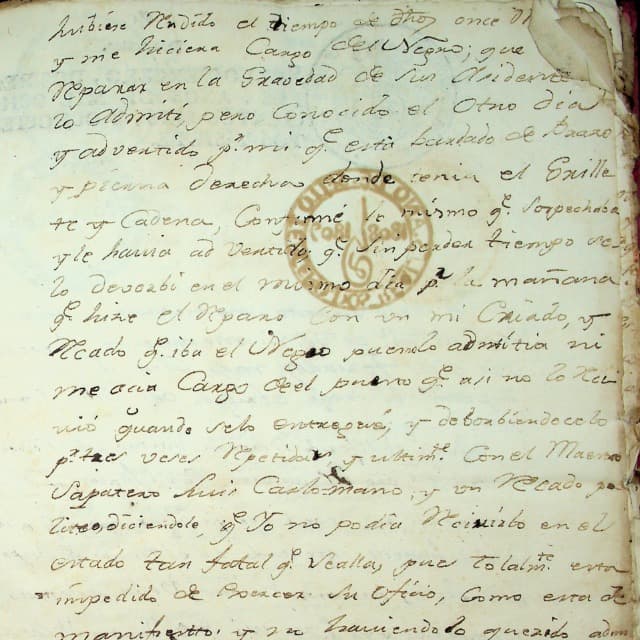 hubiese Rendido el tiempo de dhos once
y me hiciera Cargo del Negro; que
Reparar en la Gravedad de sus Acidentes
lo Admiti, pero Conocido el Otro dia
y advertido pr. mi qe. esta baldado de Brazo
y pierna derecha donde tenia el Grille
te y Cadena, Confirmé lo mismo qe. sospechaba
y le havia advertido, qe. sin perder tiempo se
lo devorbi en el mismo dia pr. la mañana
qe. hize el Reparo con un mi Criado, y
Recado qe. iba el Negro pues no lo admitia ni
me Cargo del puerto qe. asi no lo Reci
vió quando se lo entregué, y deborbiendocelo
pr. tres veses Repetidas y ultimte. Con el Maestro
Sapatero Luis Carlomano, y un Recado po
litico, diciendole, qe. Yo no podia Recivirlo en el
estado tan fatal qe. se alla, pues totalmte. esta
impedido de Exercer su Oficio, Como esta de
manifiesto, y no haviendolo querido admi